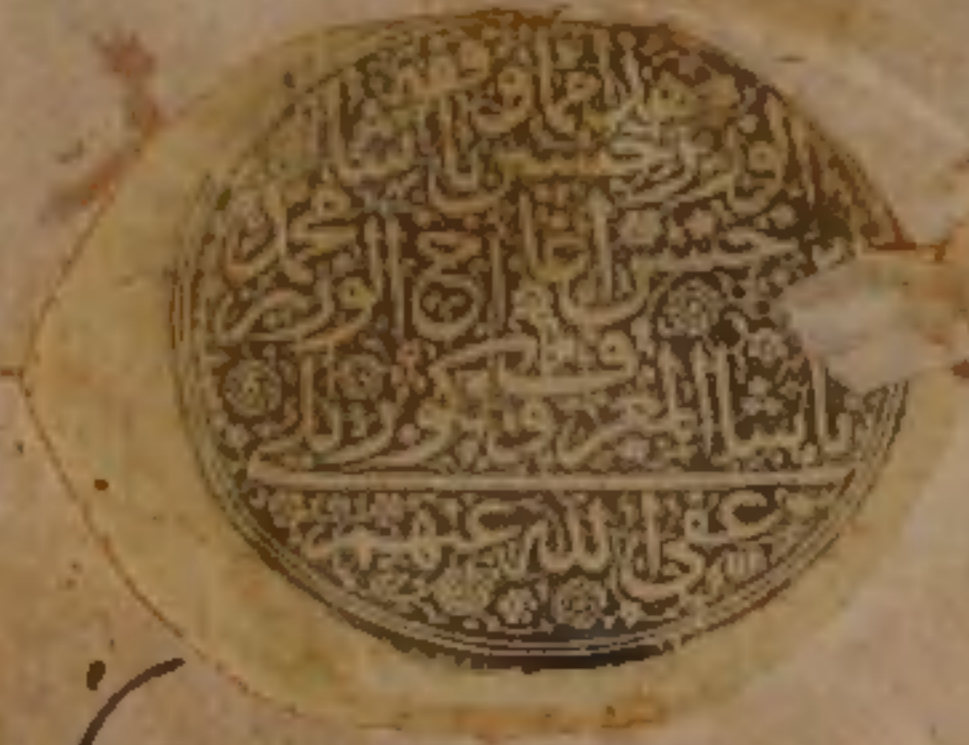 هذا مما وقفه
الوزير حسين باشا
حسن اغا اخ الوزير محمد
باشا المعروف بكوپريلي
عفى الله عنهم